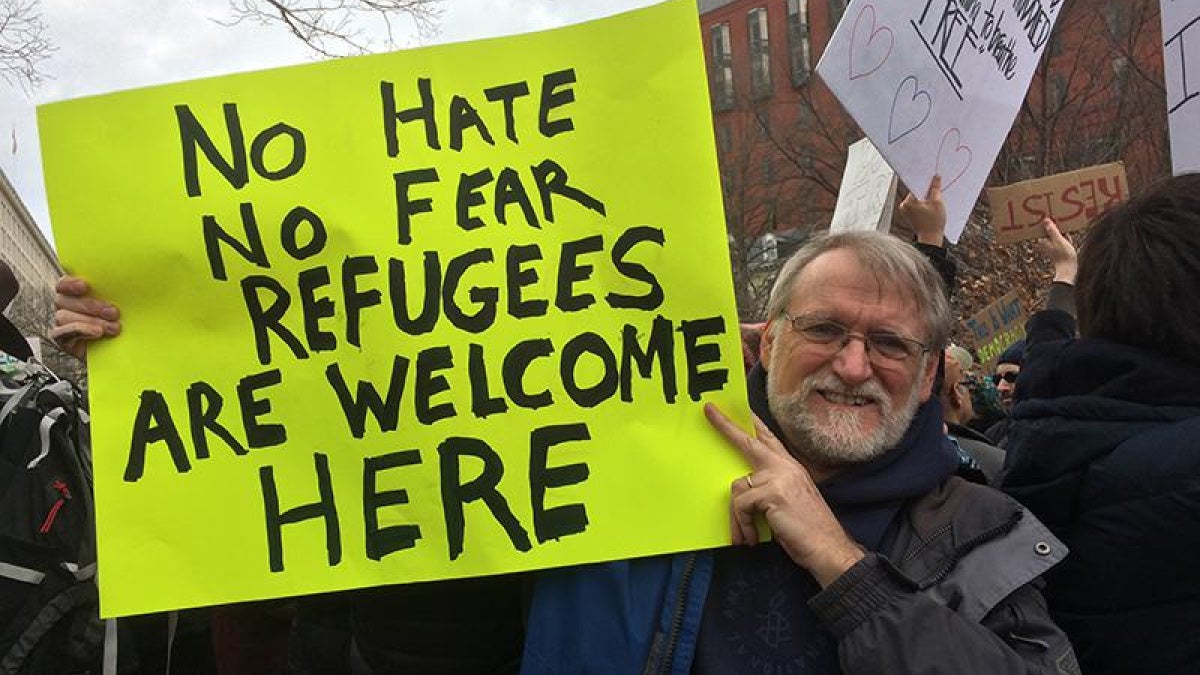 NO HATE
NO FEAR
REFUGEES
ARE WELCOME
HERE
to breathe
FREE
RESIST